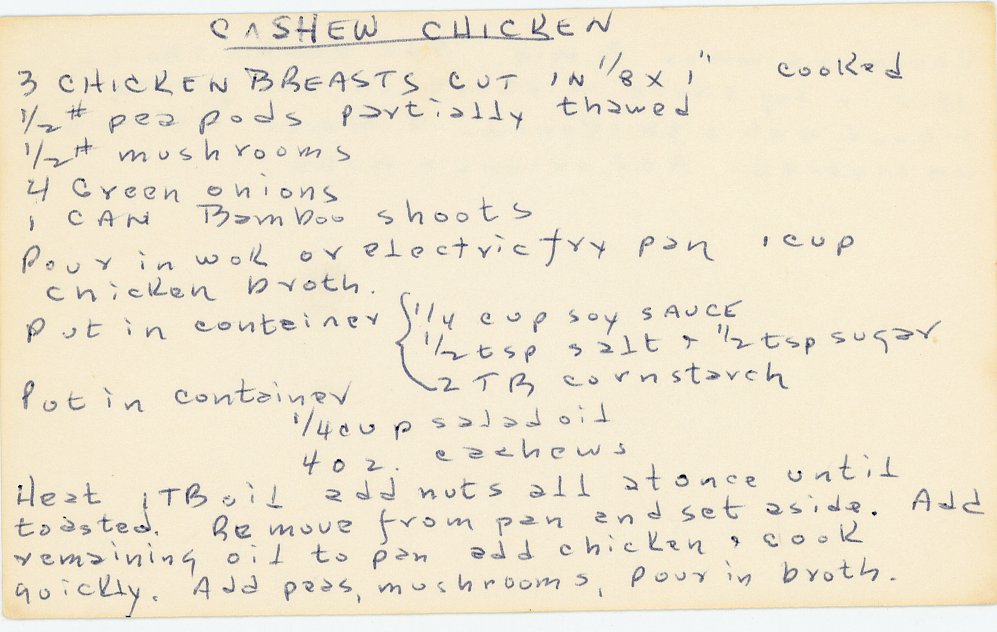 CASHEW CHICKEN
3 CHICKEN BREASTS CUT IN 1/8 x 1" cooked
1/2 # pea pods partially thawed
1/2 # mushrooms
4 Green onions
1 CAN Bamboo shoots
Pour in wok or electric fry pan 1 cup
chicken broth.
Put in container { 1/4 cup soy SAUCE
1/2 tsp salt & 1/2 tsp sugar
2 TB cornstarch
Put in container
1/4 cup salad oil
4 oz. cashews
Heat 1 TB oil add nuts all at once until
toasted. Remove from pan and set aside. Add
remaining oil to pan add chicken & cook
quickly. Add peas, mushrooms, pour in broth.